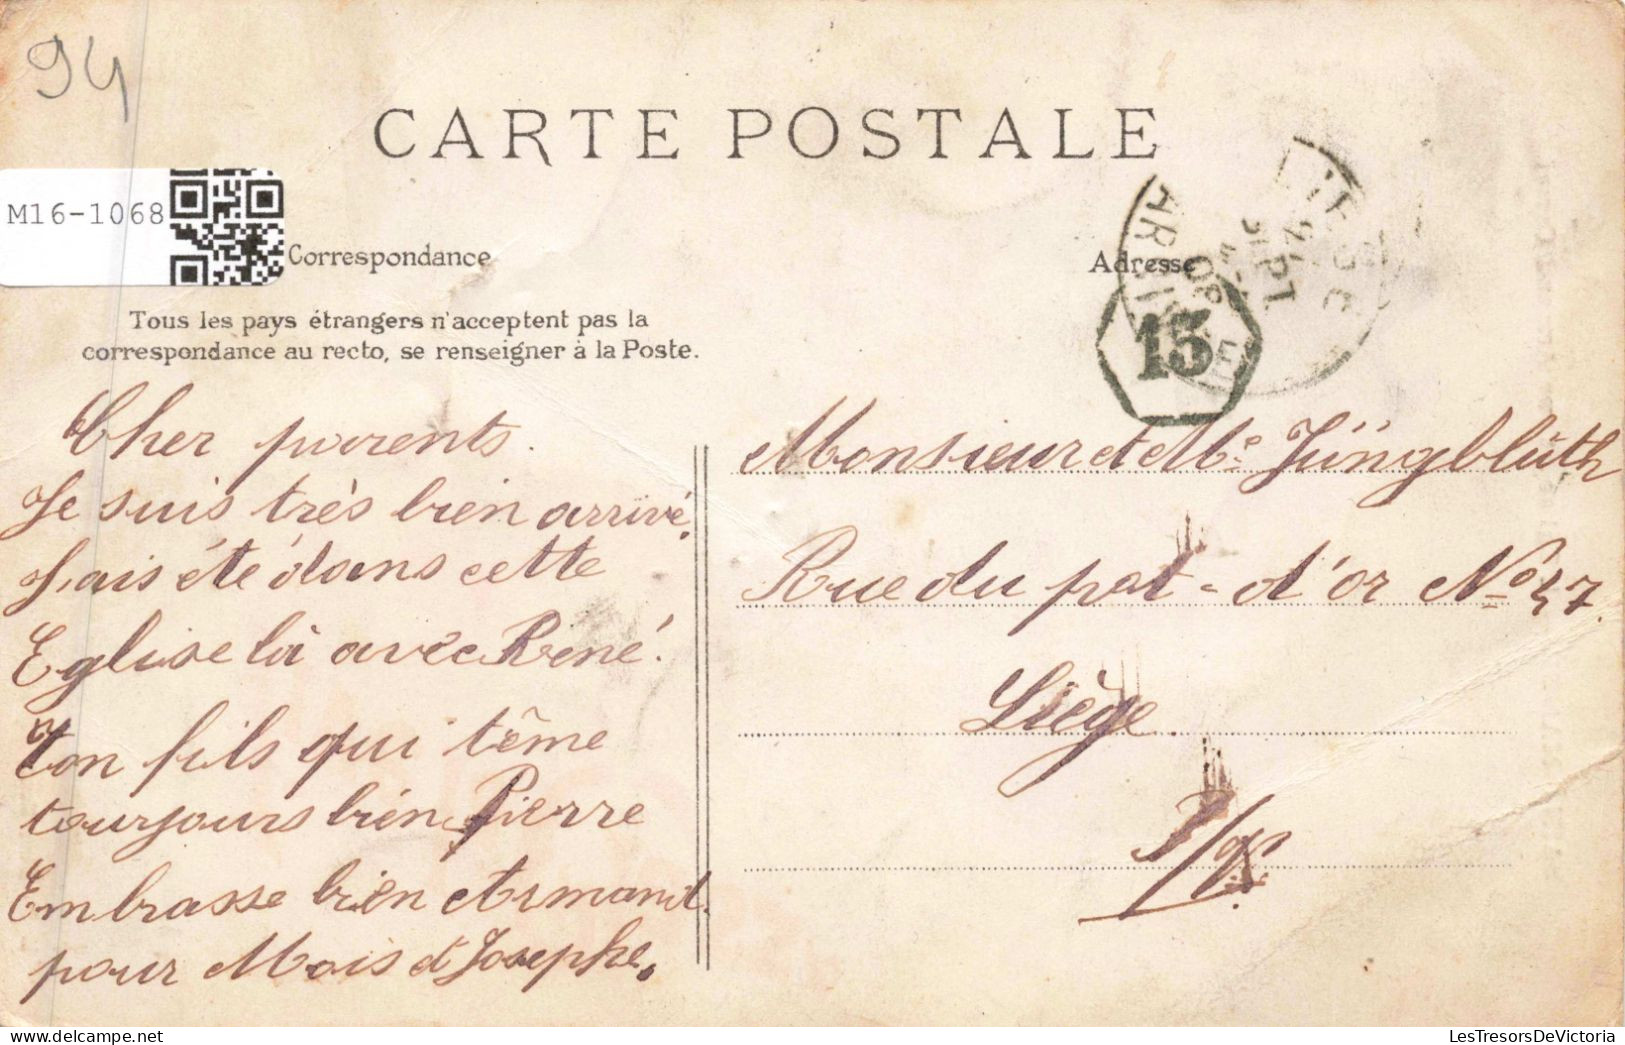 94
CARTE POSTALE
M16-1068
Correspondance
Adresse
LIEGE
ARRIVEE
15
Tous les pays étrangers n'acceptent pas la
correspondance au recto, se renseigner à la Poste.
Cher parents.
Je suis très bien arrivé.
J,ais été dans cette
Eglise là avec René.
Ton fils qui t'ême
tourjours bien Pierre
Embrasse bien Armand.
pour Mois et Josephe.
Monsieur et Me Jüngblüth
Rue du pot-d'or No 47.
Liège.
LesTresorsDeVictoria